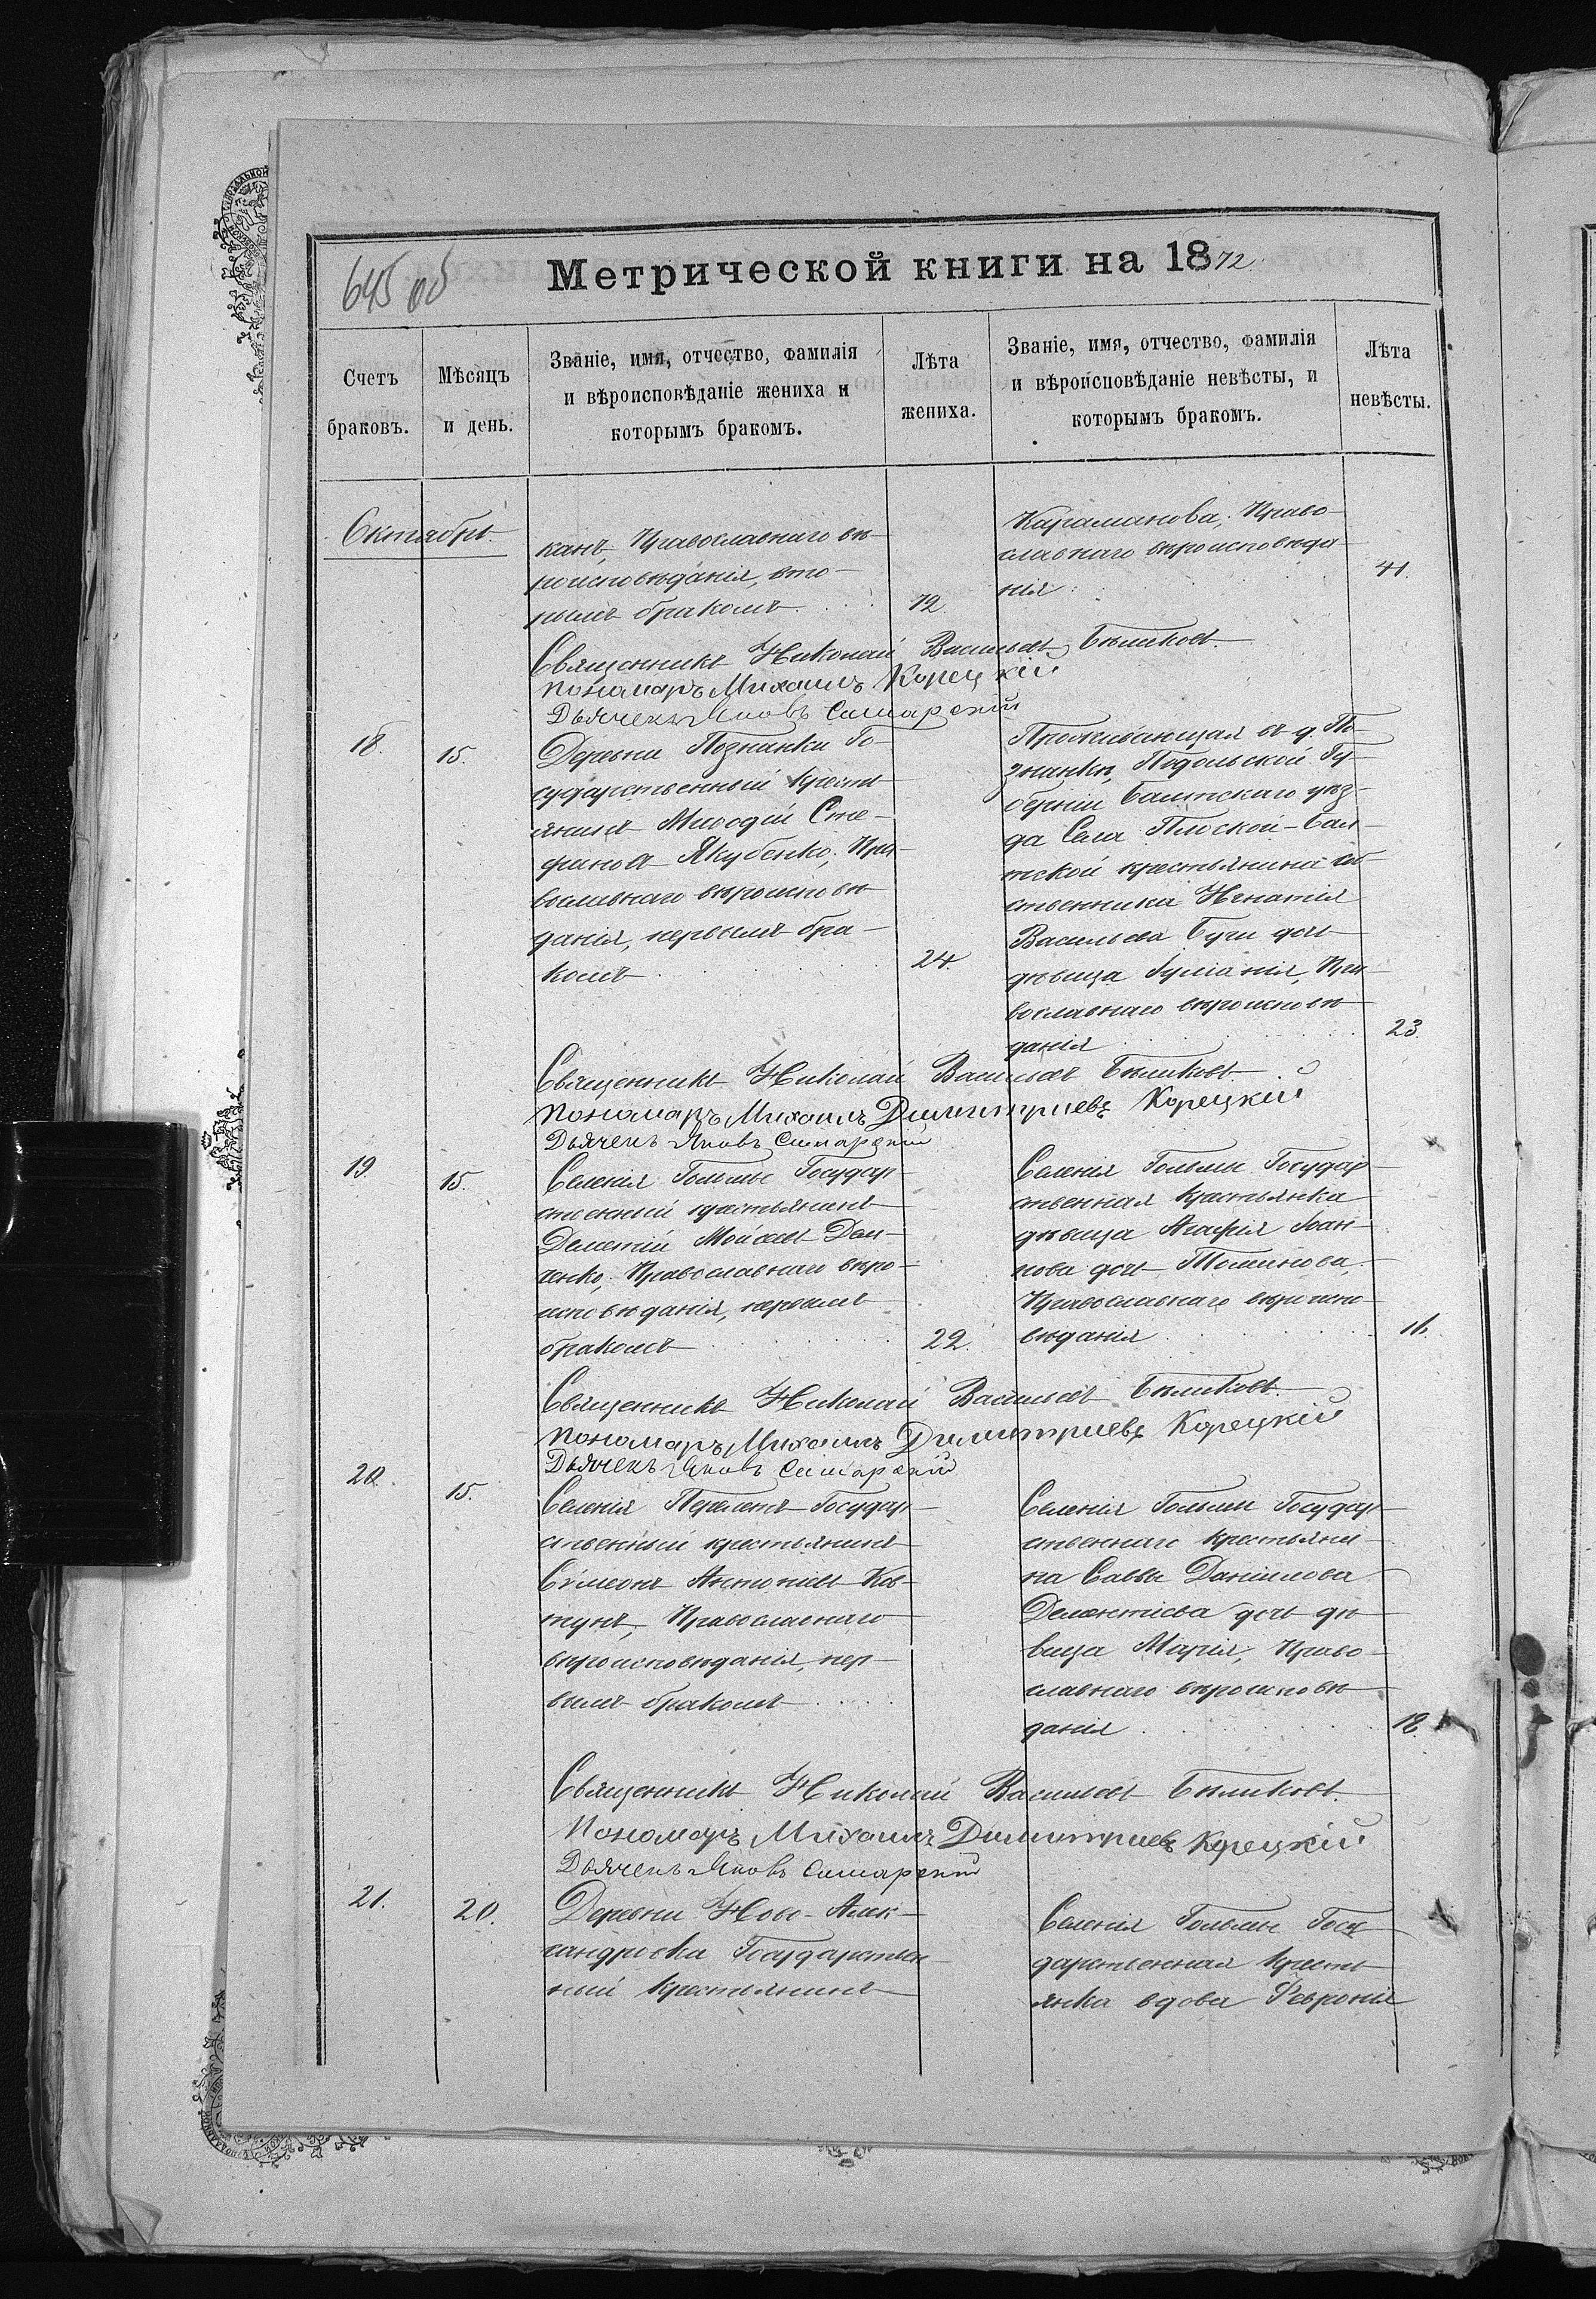 645 об
Метрической книги на 1872.
Счетъ
браковъ.
Мѣсяцъ
и день.
Званіе, имя, отчество, фамилія
и вѣроисповѣданіе жениха и
которымъ бракомъ.
Лѣта
жениха.
Званіе, имя, отчество, фамилія
и вѣроисповѣданіе невѣсты, и
которымъ бракомъ.
Лѣта
невѣсты.
Октябрь.
канъ, Православнаго вѣ-
роисповѣданія, вто-
рымъ бракомъ
72.
Караманова, Право-
славнаго вѣроисповѣда-
нія
41.
Священникъ Николай Васильевъ Бѣликовъ.
Пономарь Михаилъ Корецкій
Дьячекъ Яковъ Самарскій
18.
15.
Деревни Познанки Го-
сударственный Кресть-
янинъ Миѳодій Сте-
фановъ Якубенко, Пра-
вославнаго вѣроисповѣ-
данія, первымъ бра-
комъ
24.
Проживающая въ д. По-
знанки, Подольской Гу-
берніи Балтскаго уѣз-
да Села Плоской-Бал-
тской крестьянина соб-
ственника Игнатія
Васильева дочь
дѣвица Іуліанія, Пра-
вославнаго вѣроисповѣ-
данія
23.
Священникъ Николай Васильевъ Бѣликовъ.
Пономарь Михаилъ Димитріевъ Корецкій
Дьячекъ Яковъ Самарскій
19.
15.
Селенія Гольмы Государ-
ственный крестьянинъ
Дометій Моисеевъ Дем-
ченко, Православнаго вѣро-
исповѣданія, первымъ
бракомъ
22.
Селенія Гольмы Государ-
ственная Крестьянка
дѣвица Агафія Іоан-
нова дочь
Православнаго вѣроиспо-
вѣданія
16.
Священникъ Николай Васильевъ Бѣликовъ.
Пономарь Михаилъ Димитріевъ Корецкій
Дьячекъ Яковъ Самарскій
20.
15.
Селенія Перелетъ Государ-
ственный крестьянинъ
Сімеонъ Антоніевъ Ков-
тунъ, Православнаго
вѣроисповѣданія, пер-
вымъ бракомъ
Селенія Гольмы Государ-
ственнаго Крестьяни-
на Саввы Даніилова
Дементіева дочь дѣ-
вица Марія, Право-
славнаго вѣроисповѣ-
данія
18.
Священникъ Николай Васильевъ Бѣликовъ.
Пономарь Михаилъ Димитріевъ Корецкій
Дьячекъ Яковъ Самарскій
21.
20.
Деревни Ново-Алек-
сандровки Государствен-
ный Крестьянинъ
Селенія Гольмы Госу-
дарственная Кресть-
янка вдова Февронія